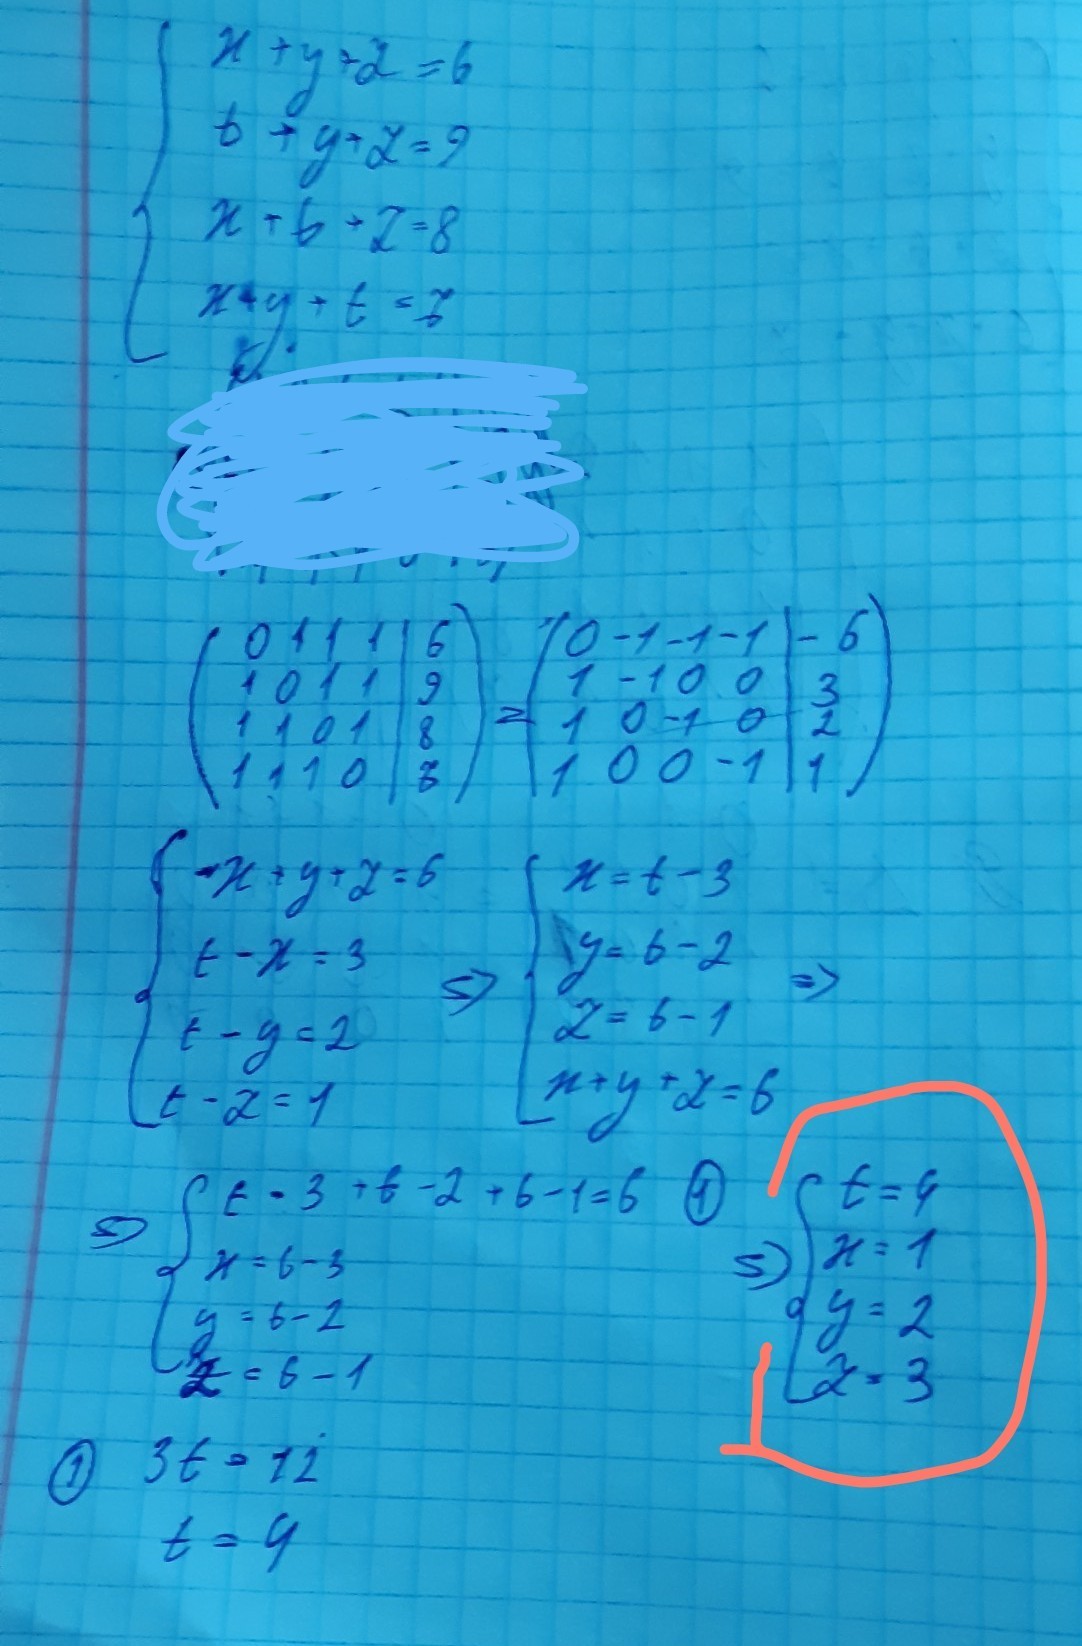 x + y + z = 6
t + y + z = 9
x + t + z = 8
x + y + t = 7
( 0 1 1 1 | 6 ) = ( 0 -1 -1 -1 | -6 )
( 1 0 1 1 | 9 ) ( 1 -1 0 0 | 3 )
( 1 1 0 1 | 8 ) ( 1 0 -1 0 | 2 )
( 1 1 1 0 | 7 ) ( 1 0 0 -1 | 1 )
x + y + z = 6
t - x = 3
t - y = 2
t - z = 1
=> x = t - 3
y = t - 2
z = t - 1
x + y + z = 6 =>
=> t - 3 + t - 2 + t - 1 = 6 ①
x = t - 3
y = t - 2
z = t - 1
=> t = 4
x = 1
y = 2
z = 3
① 3t = 12
t = 4